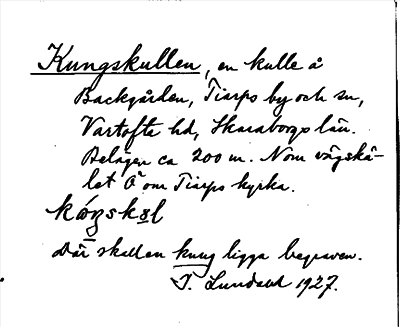 Kungskullen, en kulle å
Backgården, Tiarps by och sn,
Vartofta hd, Skaraborgs län.
Belägen ca 200 m. N om vägskä-
let Ö om Tiarps kyrka.
Där skall en kung ligga begraven.
T. Lundblad 1927.